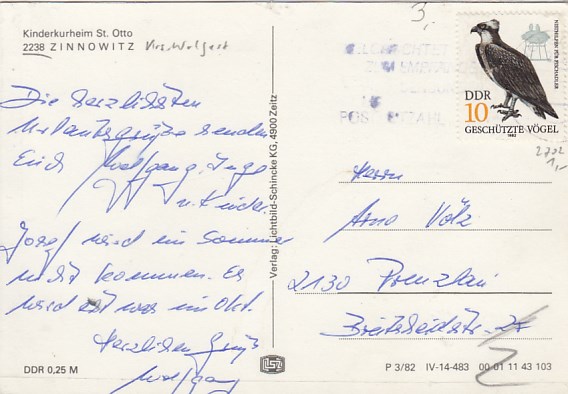 Kinderkurheim St. Otto
2238 ZINNOWITZ Krs. Wolgast
Die herzlichsten
Urlaubsgrüße senden
Euch Wolfgang, Inge
u. Kinder.
Jörg wird im Sommer
nicht kommen. Er
wird erst was im Okt.
Herzlichen Gruß
Wolfgang
DDR 0,25 M
Verlag: Lichtbild-Schincke KG, 4900 Zeitz
3,
POSTLEITZAHL
DDR
10
GESCHÜTZTE VÖGEL
1982
2702
1,-
Herrn
Arno Völz
2130 Prenzlau
Breitscheidstr. 27
P 3/82 IV-14-483 00 01 11 43 103